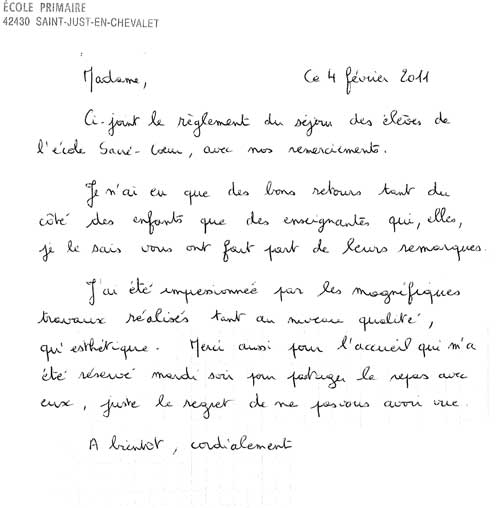 ÉCOLE PRIMAIRE
42430 SAINT-JUST-EN-CHEVALET
Madame, Ce 4 février 2011
Ci-joint le règlement du séjour des élèves de
l'école Sacré-Coeur, avec nos remerciements.
Je n'ai eu que des bons retours tant du
côté des enfants que des enseignantes qui, elles,
je le sais vous ont fait part de leurs remarques.
J'ai été impressionnée par les magnifiques
travaux réalisés tant au niveau qualité,
qu'esthétique. Merci aussi pour l'accueil qui m'a
été réservé mardi soir pour partager le repas avec
eux, juste le regret de ne pas vous avoir vue.
A bientôt, cordialement